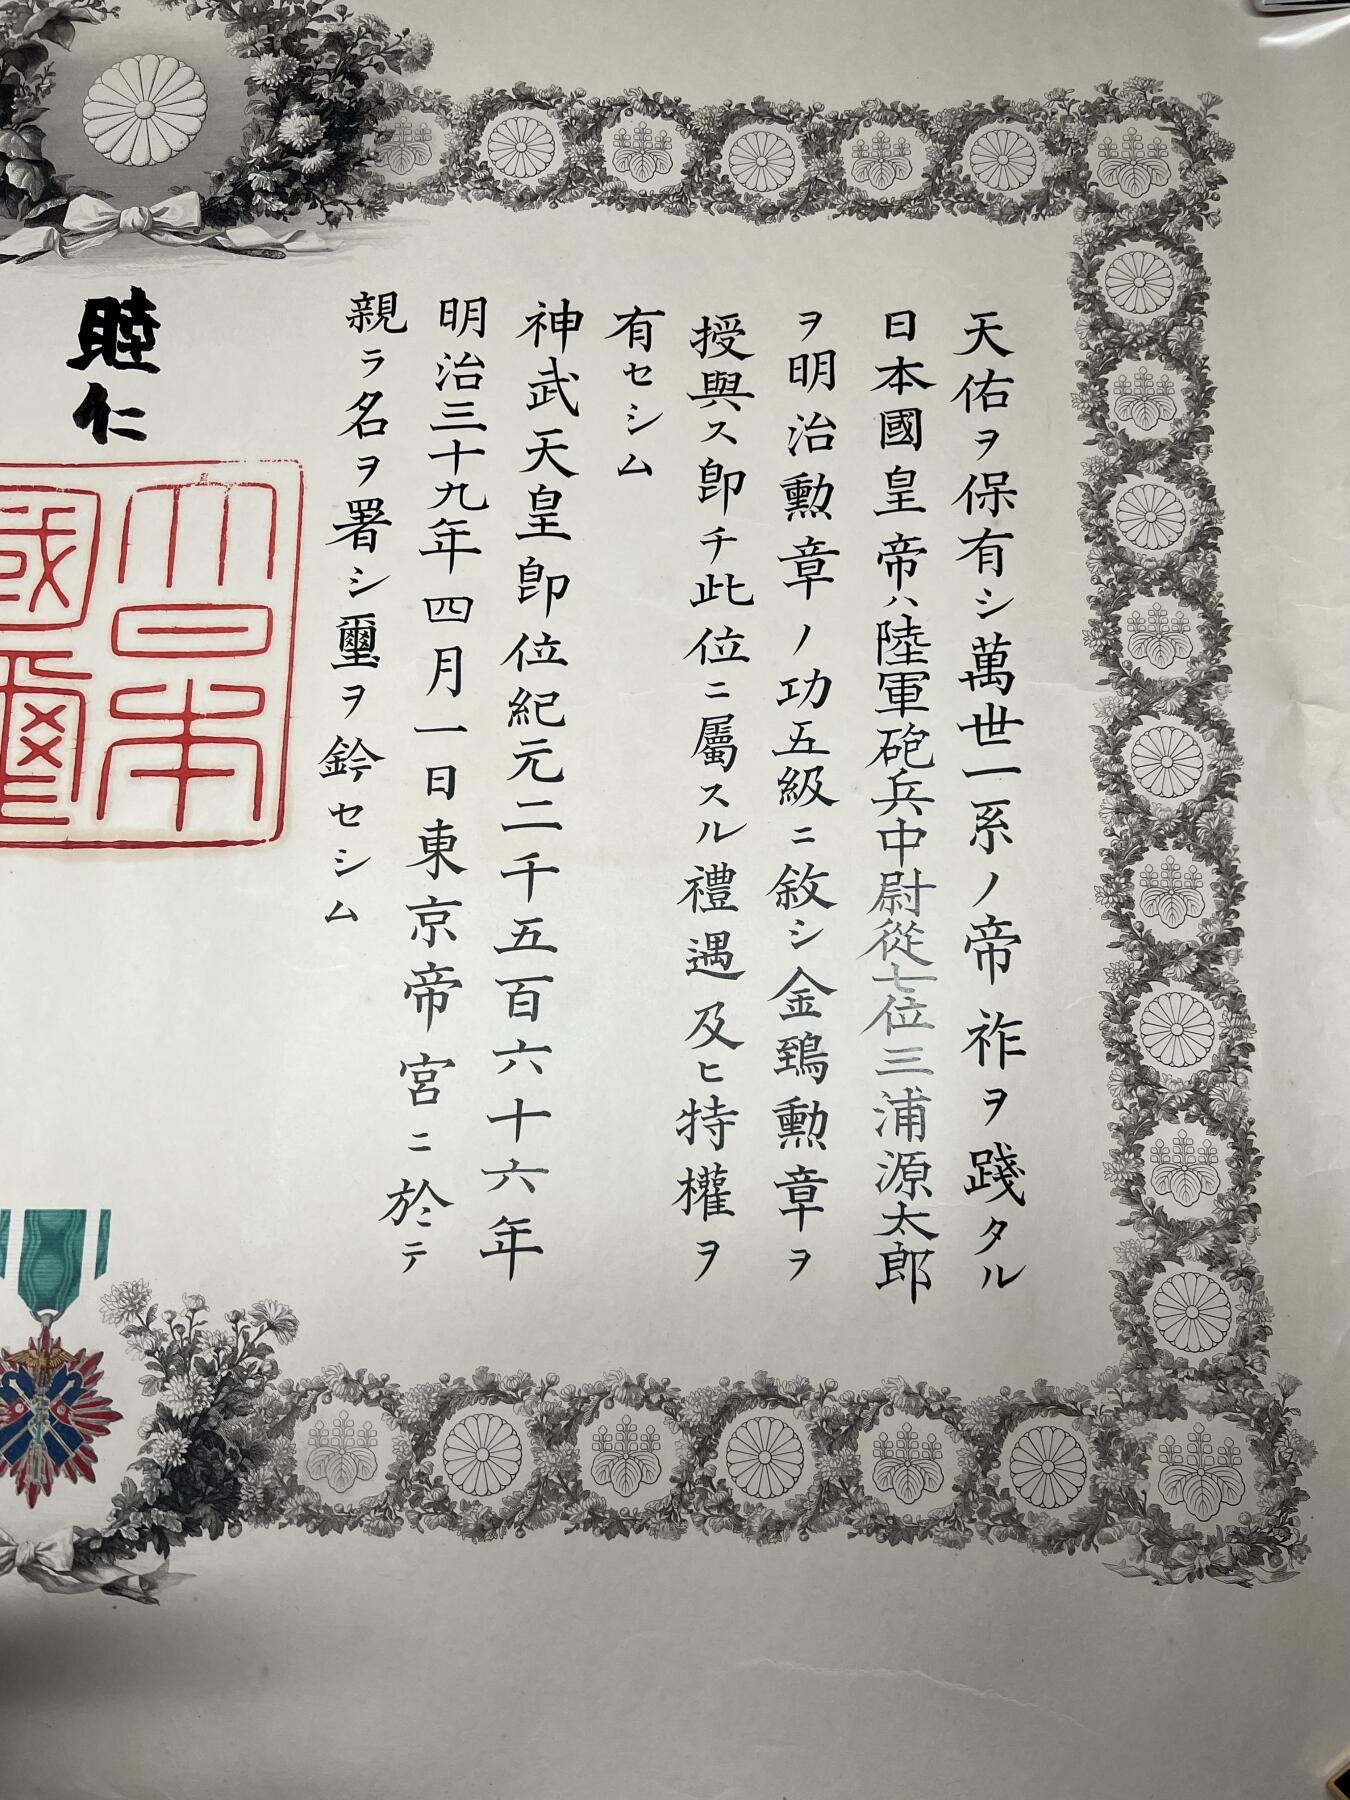 天佑ヲ保有シ萬世一系ノ帝祚ヲ踐タル
日本國皇帝ハ陸軍砲兵中尉從七位三浦源太郎
ヲ明治勲章ノ功五級ニ敘シ金鵄勲章ヲ
授與ス卽チ此位ニ屬スル禮遇及ヒ特權ヲ
有セシム
神武天皇卽位紀元二千五百六十六年
明治三十九年四月一日東京帝宮ニ於テ
親ラ名ヲ署シ璽ヲ鈐セシム
睦仁
大日本
國璽